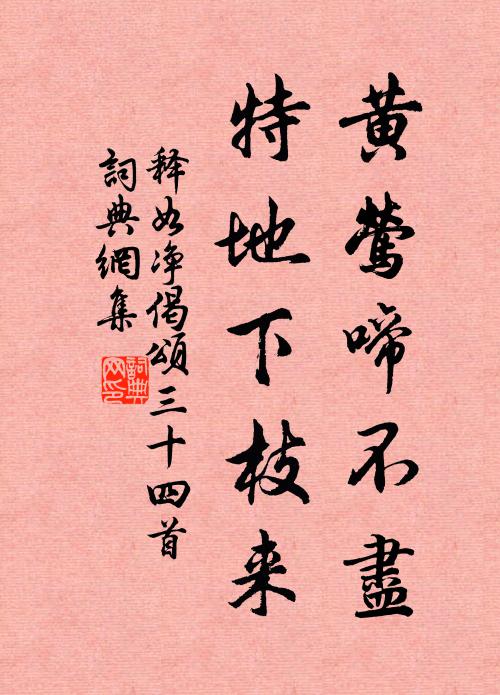 黄鶯啼不盡
特地下枝来
释如净偈頌三十四首
詞典網集
詞典
网印